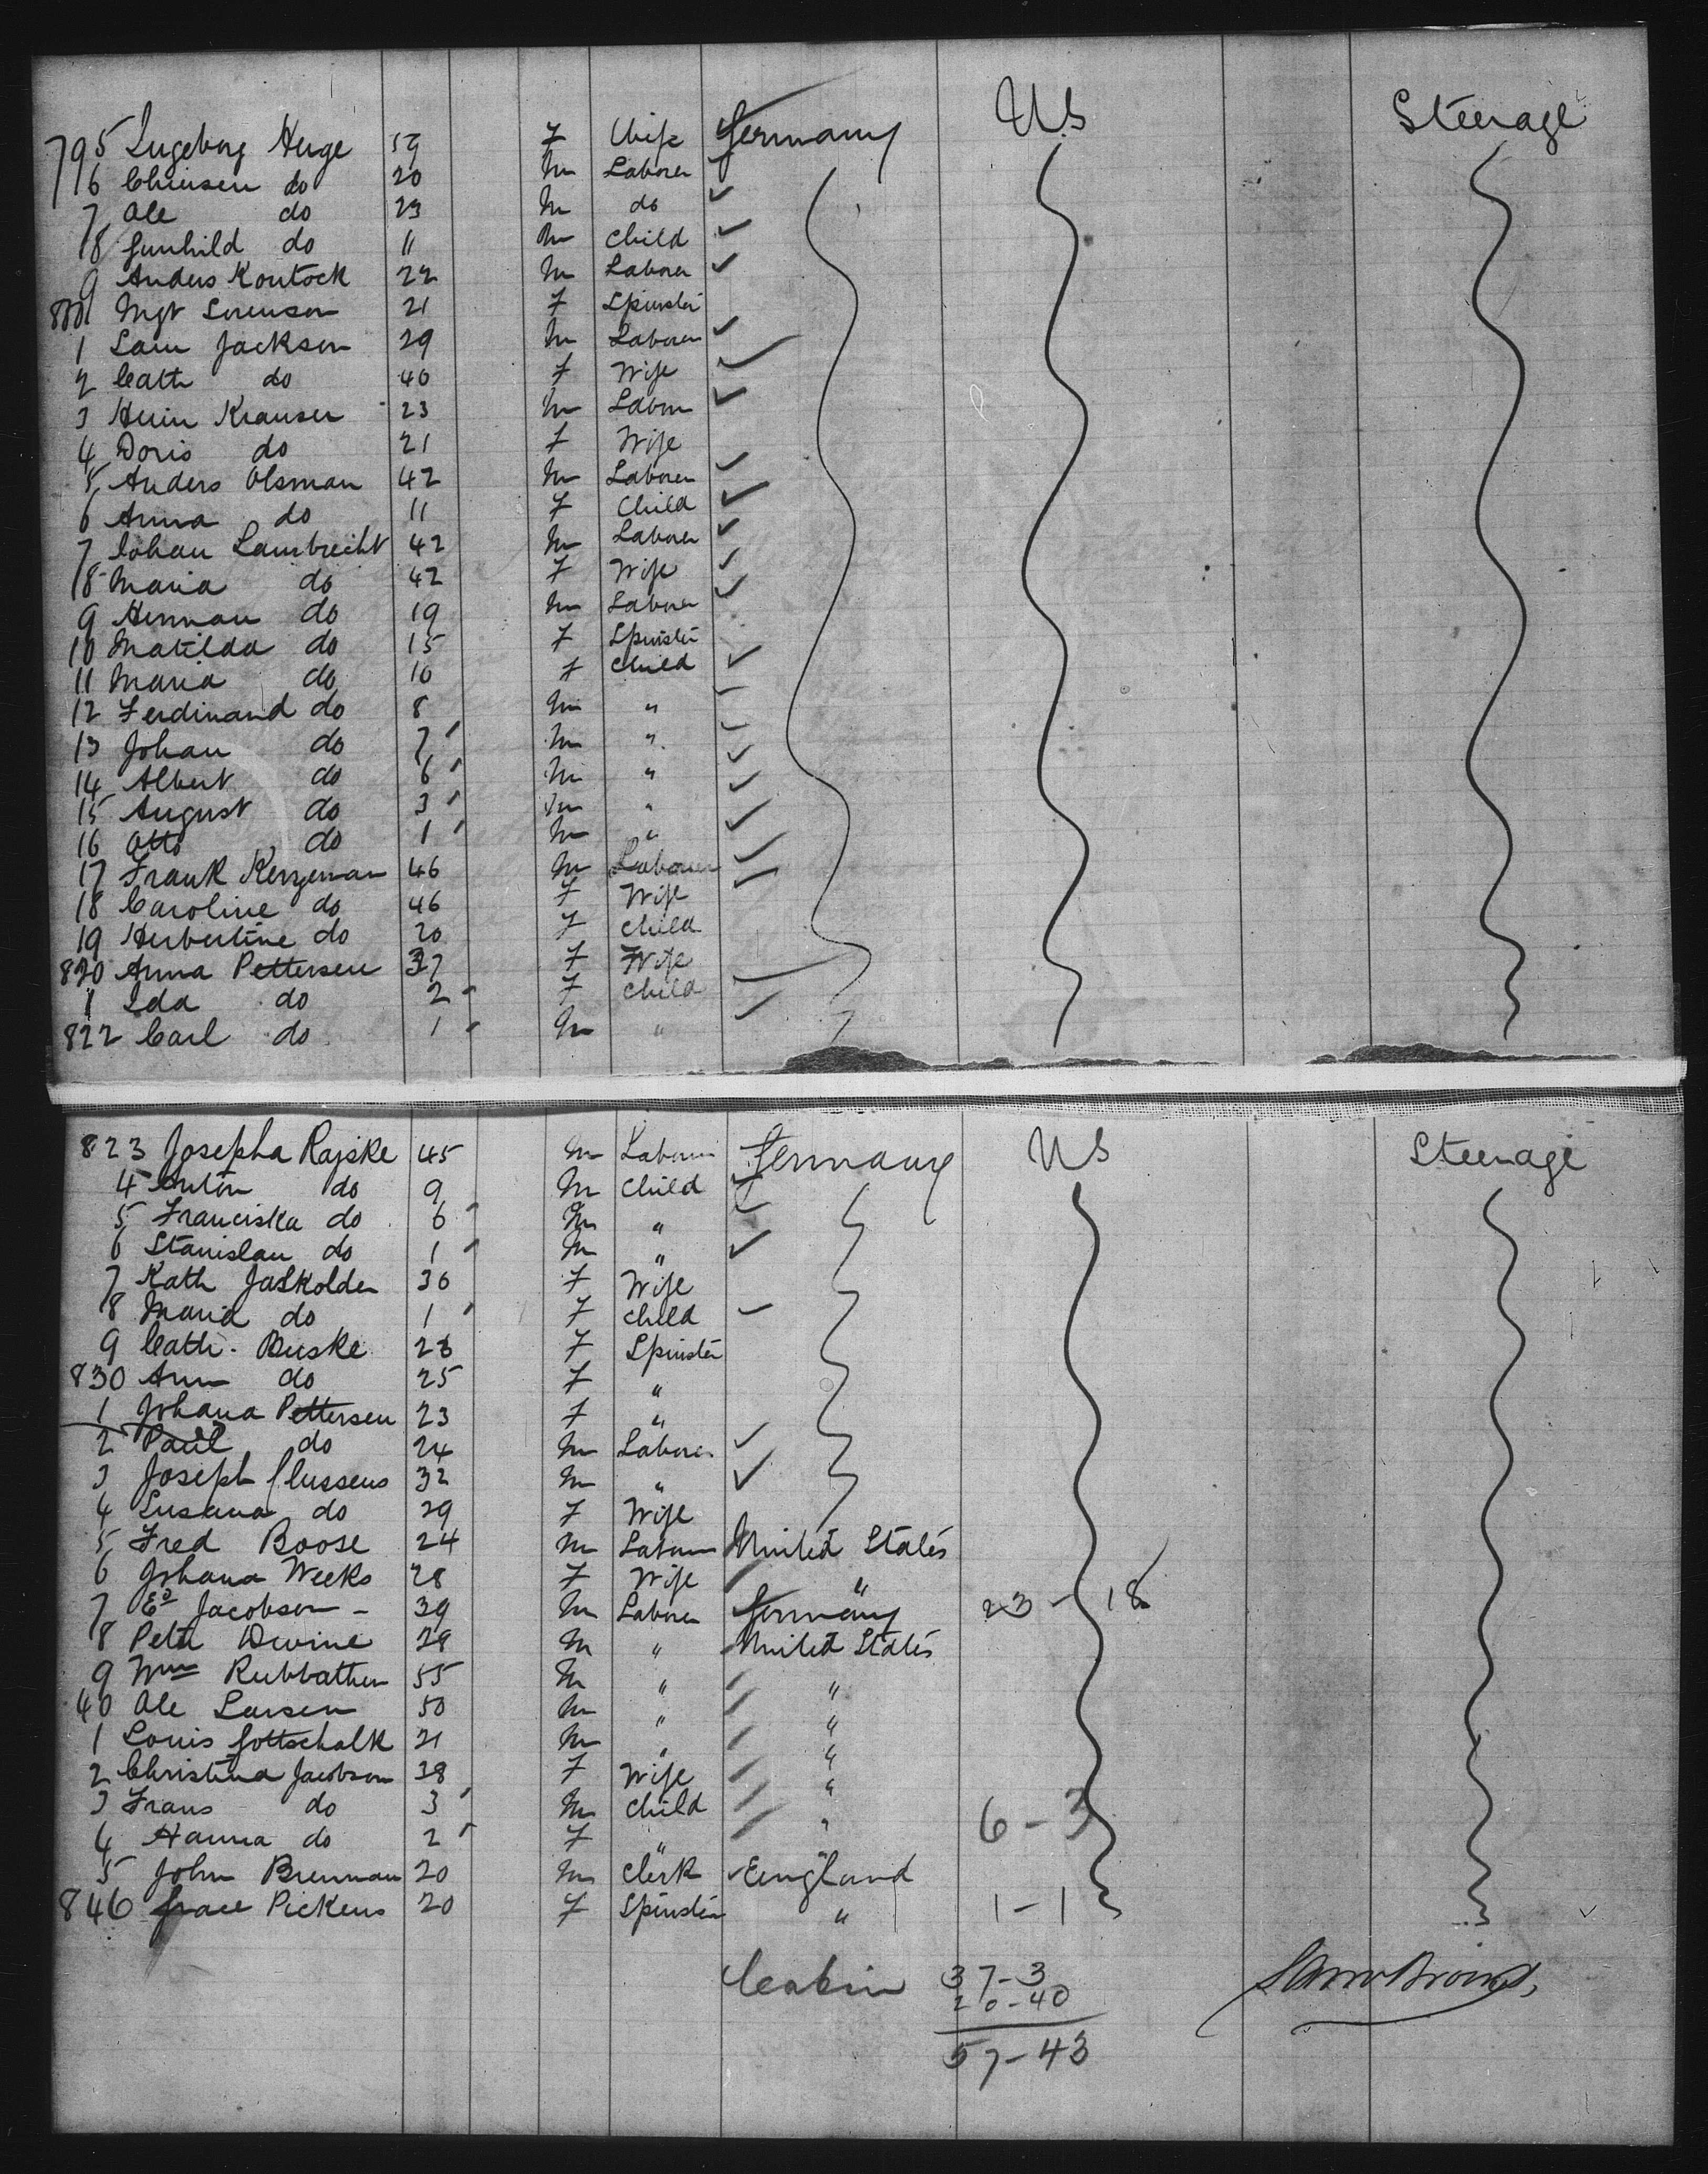 795 Ingeborg Huge 59 F Wife Germany US Steerage
6 Chrinsen do 20 M Laborer
7 Ole do 23 M do
8 Gunhild do 11 M Child
9 Anders Kontock 22 M Laborer
800 Mgt Sorenson 21 F Spinster
1 Sam Jackson 29 M Laborer
2 Cath do 40 F Wife
3 Hein Krauser 23 M Labor
4 Doris do 21 F Wife
5 Anders Olsman 42 M Laborer
6 Anna do 11 F Child
7 Johan Lambrecht 42 M Laborer
8 Maria do 42 F Wife
9 Herman do 19 M Laborer
10 Matilda do 15 F Spinster
11 Maria do 10 F Child
12 Ferdinand do 8 M "
13 Johan do 7 M "
14 Albert do 6 M "
15 August do 3 M "
16 Otto do 1 M "
17 Frank Kerzeman 46 M Laborer
18 Caroline do 46 F Wife
19 Herbertine do 20 F Child
820 Anna Pettersen 37 F Wife
1 Ida do 2 F Child
822 Carl do 1 M "
823 Josepha Rajske 45 M Laborer Germany US Steerage
4 Anton do 9 M Child
5 Franciska do 6 M "
6 Stanislau do 1 M "
7 Kath Jaskolden 30 F Wife
8 Maria do 1 F Child
9 Cath. Buske 28 F Spinster
830 Ann do 25 F "
1 Johana Pettersen 23 F "
2 Paul do 24 M Laborer
3 Joseph Clussens 32 M "
4 Susana do 29 F Wife
5 Fred Boose 24 M Laborer United States
6 Johana Weeks 28 F Wife "
7 Ed Jacobson - 39 M Laborer Germany 23 - 18
8 Peter Devine 28 M " United States
9 Wm Rubbathen 55 M " "
40 Ole Larsen 50 M " "
1 Louis Gottschalk 21 M " "
2 Christina Jacobson 38 F Wife "
3 Frans do 3 M Child " 6 - 3
4 Hanna do 2 F "
5 John Brennan 20 M Clerk England
846 Grace Pickens 20 F Spinster " 1 - 1
Cabin 37 - 3
20 - 40
57 - 43